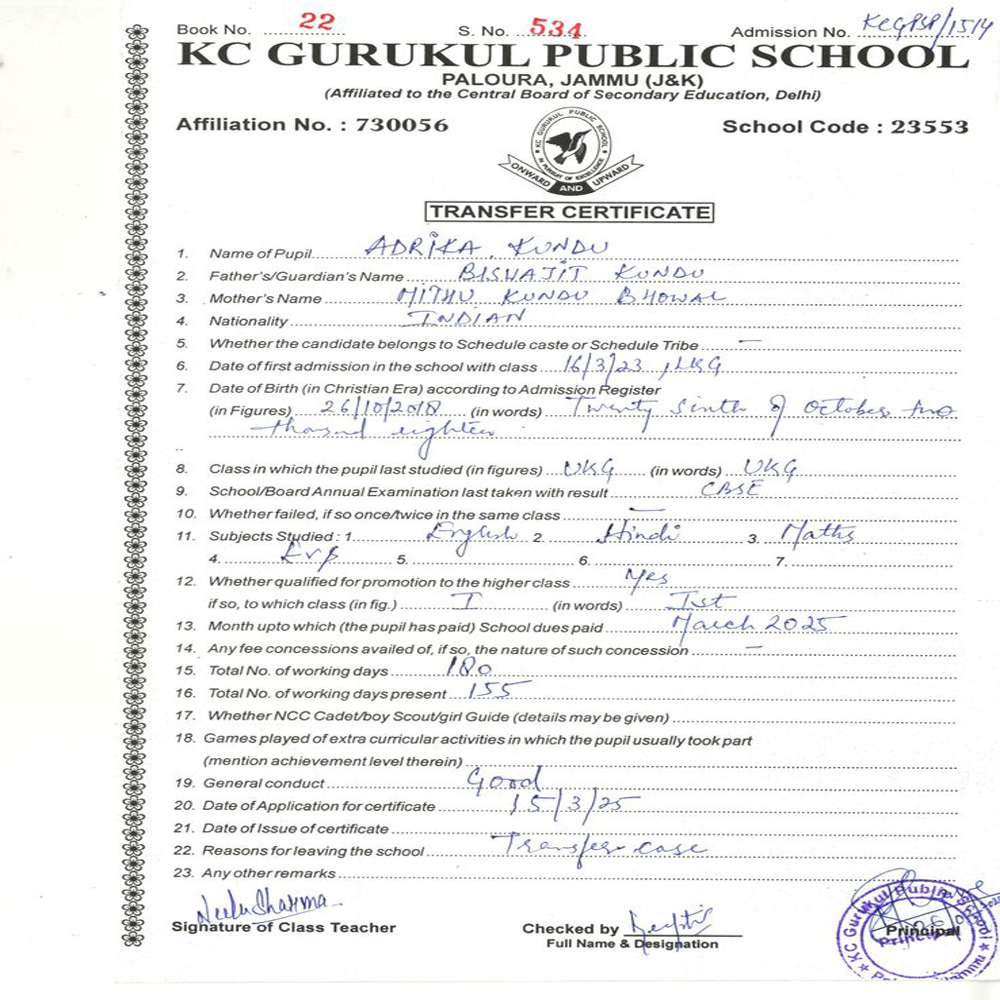 Book No. 22 S. No. 534 Admission No. KCGPSP/1514
KC GURUKUL PUBLIC SCHOOL
PALOURA, JAMMU (J&K)
(Affiliated to the Central Board of Secondary Education, Delhi)
Affiliation No. : 730056 School Code : 23553
KC GURUKUL PUBLIC SCHOOL
IN PURSUIT OF EXCELLENCE
ONWARD AND UPWARD
TRANSFER CERTIFICATE
1. Name of Pupil ADRIKA KUNDU
2. Father's/Guardian's Name BISWAJIT KUNDU
3. Mother's Name MITHU KUNDU BHOWAL
4. Nationality INDIAN
5. Whether the candidate belongs to Schedule caste or Schedule Tribe –
6. Date of first admission in the school with class 16/3/23, LKG
7. Date of Birth (in Christian Era) according to Admission Register
(in Figures) 26/10/2018 (in words) Twenty Sixth of October two
thousand eighteen
8. Class in which the pupil last studied (in figures) UKG (in words) UKG
9. School/Board Annual Examination last taken with result CBSE
10. Whether failed, if so once/twice in the same class –
11. Subjects Studied : 1. English 2. Hindi 3. Maths
4. EVS 5. 6. 7.
12. Whether qualified for promotion to the higher class Yes
if so, to which class (in fig.) I (in words) Ist
13. Month upto which (the pupil has paid) School dues paid March 2025
14. Any fee concessions availed of, if so, the nature of such concession –
15. Total No. of working days 180
16. Total No. of working days present 155
17. Whether NCC Cadet/boy Scout/girl Guide (details may be given)
18. Games played of extra curricular activities in which the pupil usually took part
(mention achievement level therein)
19. General conduct Good
20. Date of Application for certificate 15/3/25
21. Date of Issue of certificate
22. Reasons for leaving the school Transfer case
23. Any other remarks
Neelu Sharma
Signature of Class Teacher Checked by Principal
Full Name & Designation
KC Gurukul Public School
Principal